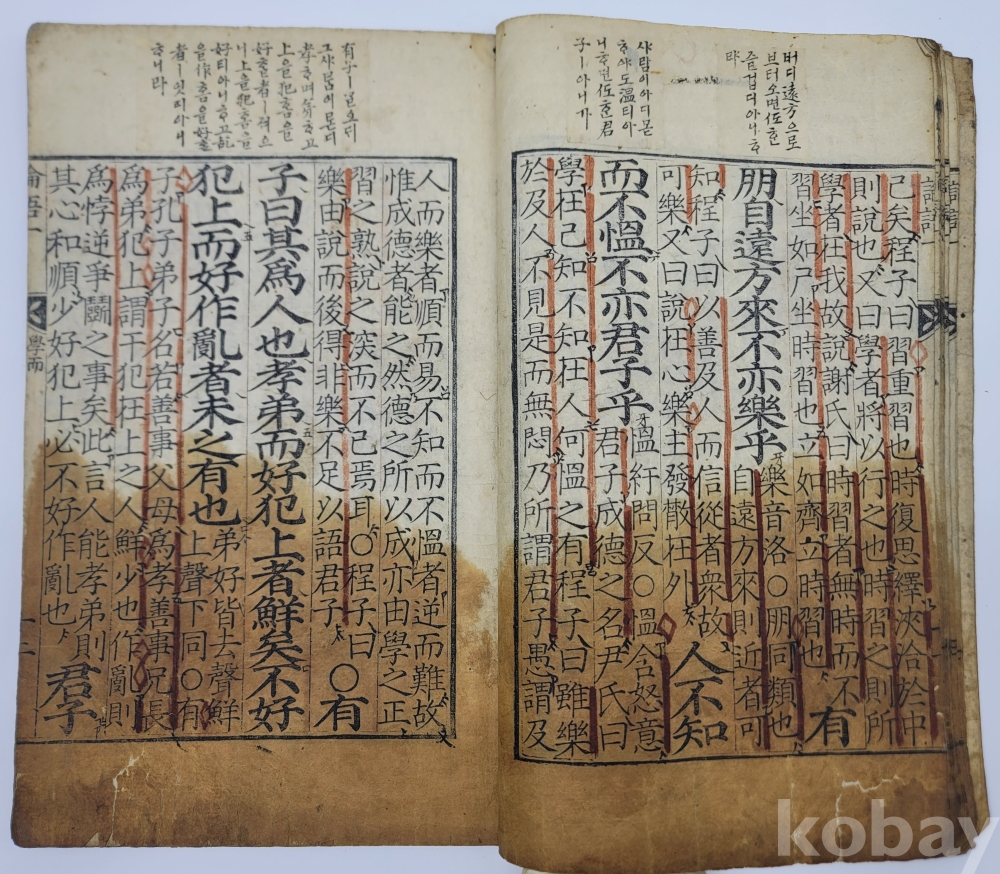 버디遠方으로
브터오면ᄯᅩᄒᆞᆫ
즐겁디아니ᄒᆞ
랴
사ᄅᆞᆷ이아디몯
ᄒᆞ야도慍티아
니ᄒᆞ면ᄯᅩᄒᆞᆫ君
子ㅣ아니가
己矣程子曰習重習也時復思繹浹洽於中
則說也又曰學者將以行之也時習之則所
學者在我故說謝氏曰時習者無時而不
習坐如尸坐時習也立如齊立時習也
有
朋自遠方來不亦樂乎
樂音洛○朋同類也
自遠方來則近者可
知程子曰以善及人而信從者衆故
可樂又曰說在心樂主發散在外
人不知
而不慍不亦君子乎
慍紆問反○慍含怒意
君子成德之名尹氏曰
學在己知不知在人何慍之有程子曰雖樂
於及人不見是而無悶乃所謂君子愚謂及
有子ㅣᄀᆞᆯ오ᄃᆡ
그사ᄅᆞᆷ이론디
孝ᄒᆞ며弟ᄒᆞ고
上을犯홈을
好ᄒᆞᆯ者ㅣ져그
니上을犯홈을
好티아니ᄒᆞ고亂
을作홈을好ᄒᆞᆯ
者ㅣ잇디아니
ᄒᆞ니라
人而樂者順而易不知而不慍者逆而難故
惟成德者能之然德之所以成亦由學之正
習之熟說之深而不已焉耳○程子曰
樂由說而後得非樂不足以語君子
○有
子曰其爲人也孝弟而好犯上者鮮矣不好
犯上而好作亂者未之有也
弟好皆去聲鮮
上聲下同○有
子孔子弟子名若善事父母爲孝善事兄長
爲弟犯上謂干犯在上之人鮮少也作亂則
爲悖逆爭鬪之事矣此言人能孝弟則
其心和順少好犯上必不好作亂也
君子
論語一
學而
二
kobay